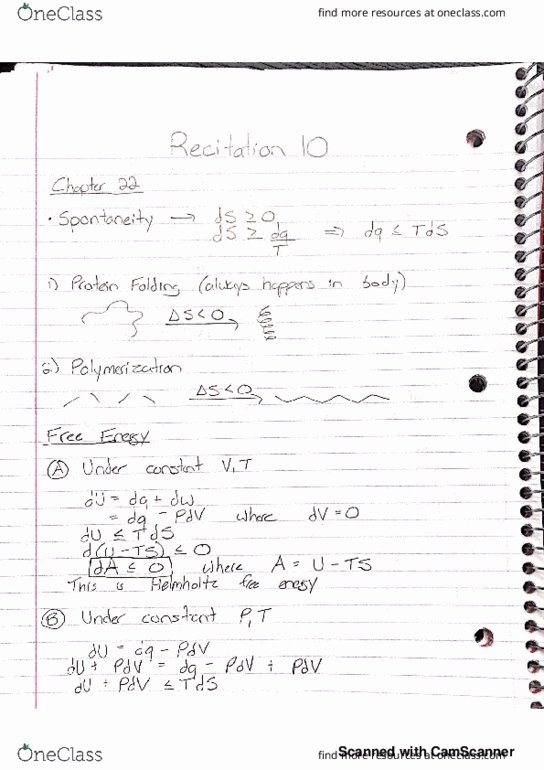 OneClass find more resources at oneclass.com
Recitation 10
Chapter 22
• Spontaneity → dS ≥ 0
dS ≥ dq/T ⇒ dq ≤ TdS
1) Protein Folding (always happens in body)
ΔS < 0
2) Polymerization
ΔS < 0
Free Energy
Ⓐ Under constant V,T
dU = dq + dw
= dq - PdV where dV = 0
dU ≤ TdS
d(U - TS) ≤ 0
dA ≤ 0 where A = U - TS
This is Helmholtz free energy
Ⓑ Under constant P,T
dU = dq - PdV
dU + PdV = dq - PdV + PdV
dU + PdV ≤ TdS
OneClass find more resources at oneclass.com
Scanned with CamScanner